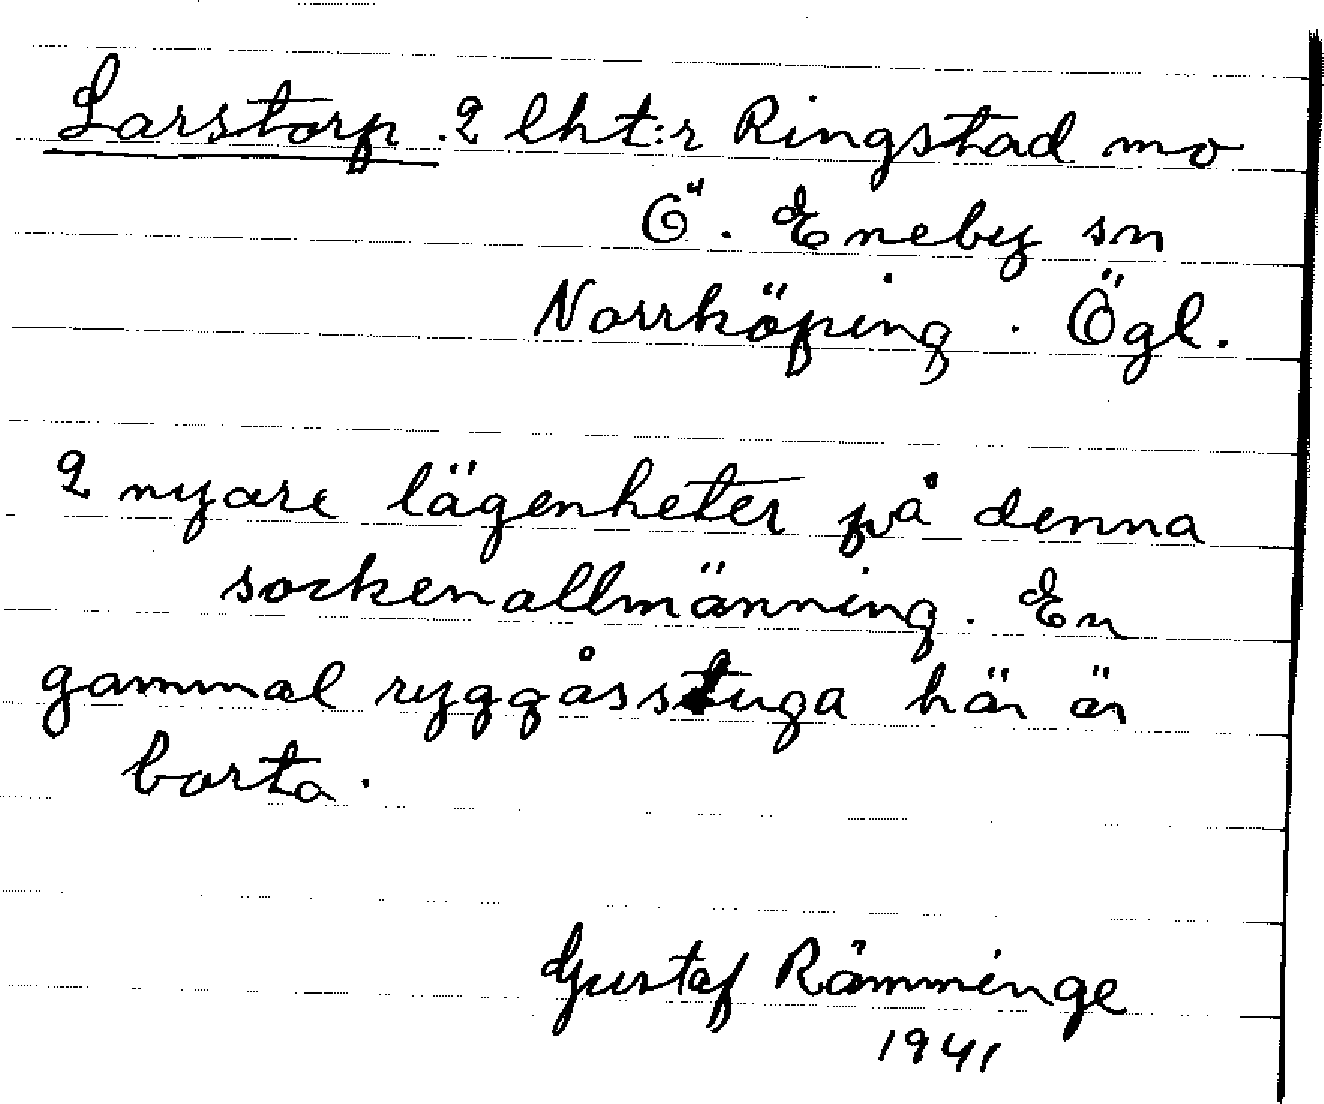 Larstorp. 2 lht:r Ringstad mo
Ö. Eneby sn
Norrköping. Ögl.
2 nyare lägenheter på denna
sockenallmänning. En
gammal ryggåsstuga här är
borta.
Gustaf Rämminge
1941